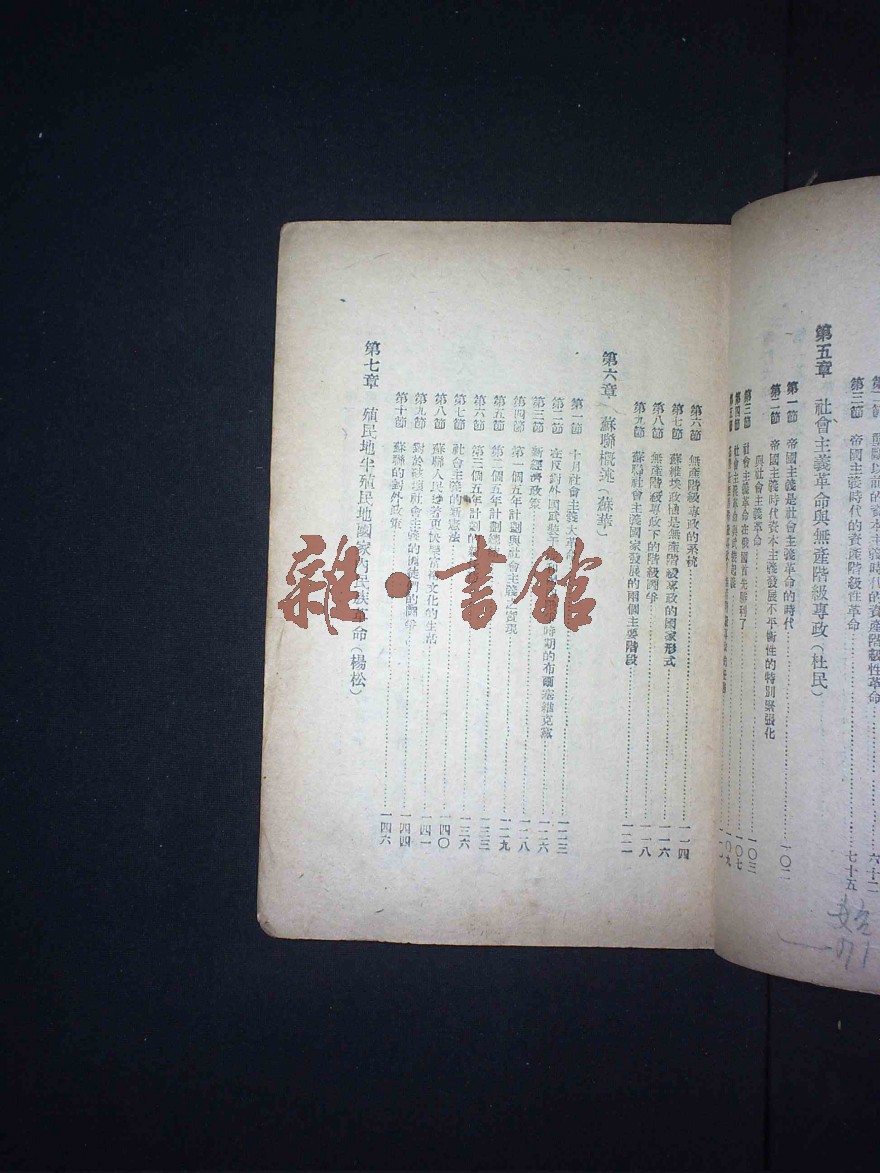 第三節 帝國主義時代的資產階級性革命 七十五
第五章 社會主義革命與無產階級專政（杜民）
第一節 帝國主義是社會主義革命的時代 一〇二
第二節 帝國主義時代資本主義發展不平衡性的特別緊張化
與社會主義革命 一〇三
第三節 社會主義革命在俄國首先勝利了 一〇七
第四節 社會主義革命與武裝起義 一〇九
第五節
第六節 無產階級專政的系統 一一四
第七節 蘇維埃政權是無產階級專政的國家形式 一一六
第八節 無產階級專政下的階級鬥爭 一一八
第九節 蘇聯社會主義國家發展的兩個主要階段 一二一
第六章 蘇聯概述（蘇華）
第一節 十月社會主義大革命 一二三
第二節 在反對外國武裝干 時期的布爾塞維克黨 一二六
第三節 新經濟政策 一二八
第四節 第一個五年計劃與社會主義之實現 一二九
第五節 第二個五年計劃總 一三三
第六節 第三個五年計劃的 一三六
第七節 社會主義的新憲法 一四〇
第八節 蘇聯人民 快樂富裕文化的生活 一四一
第九節 對於破壞社會主義的匪徒們的鬥爭 一四四
第十節 蘇聯的對外政策 一四六
第七章 殖民地半殖民地國家內民族革命（楊松）
雜·書館